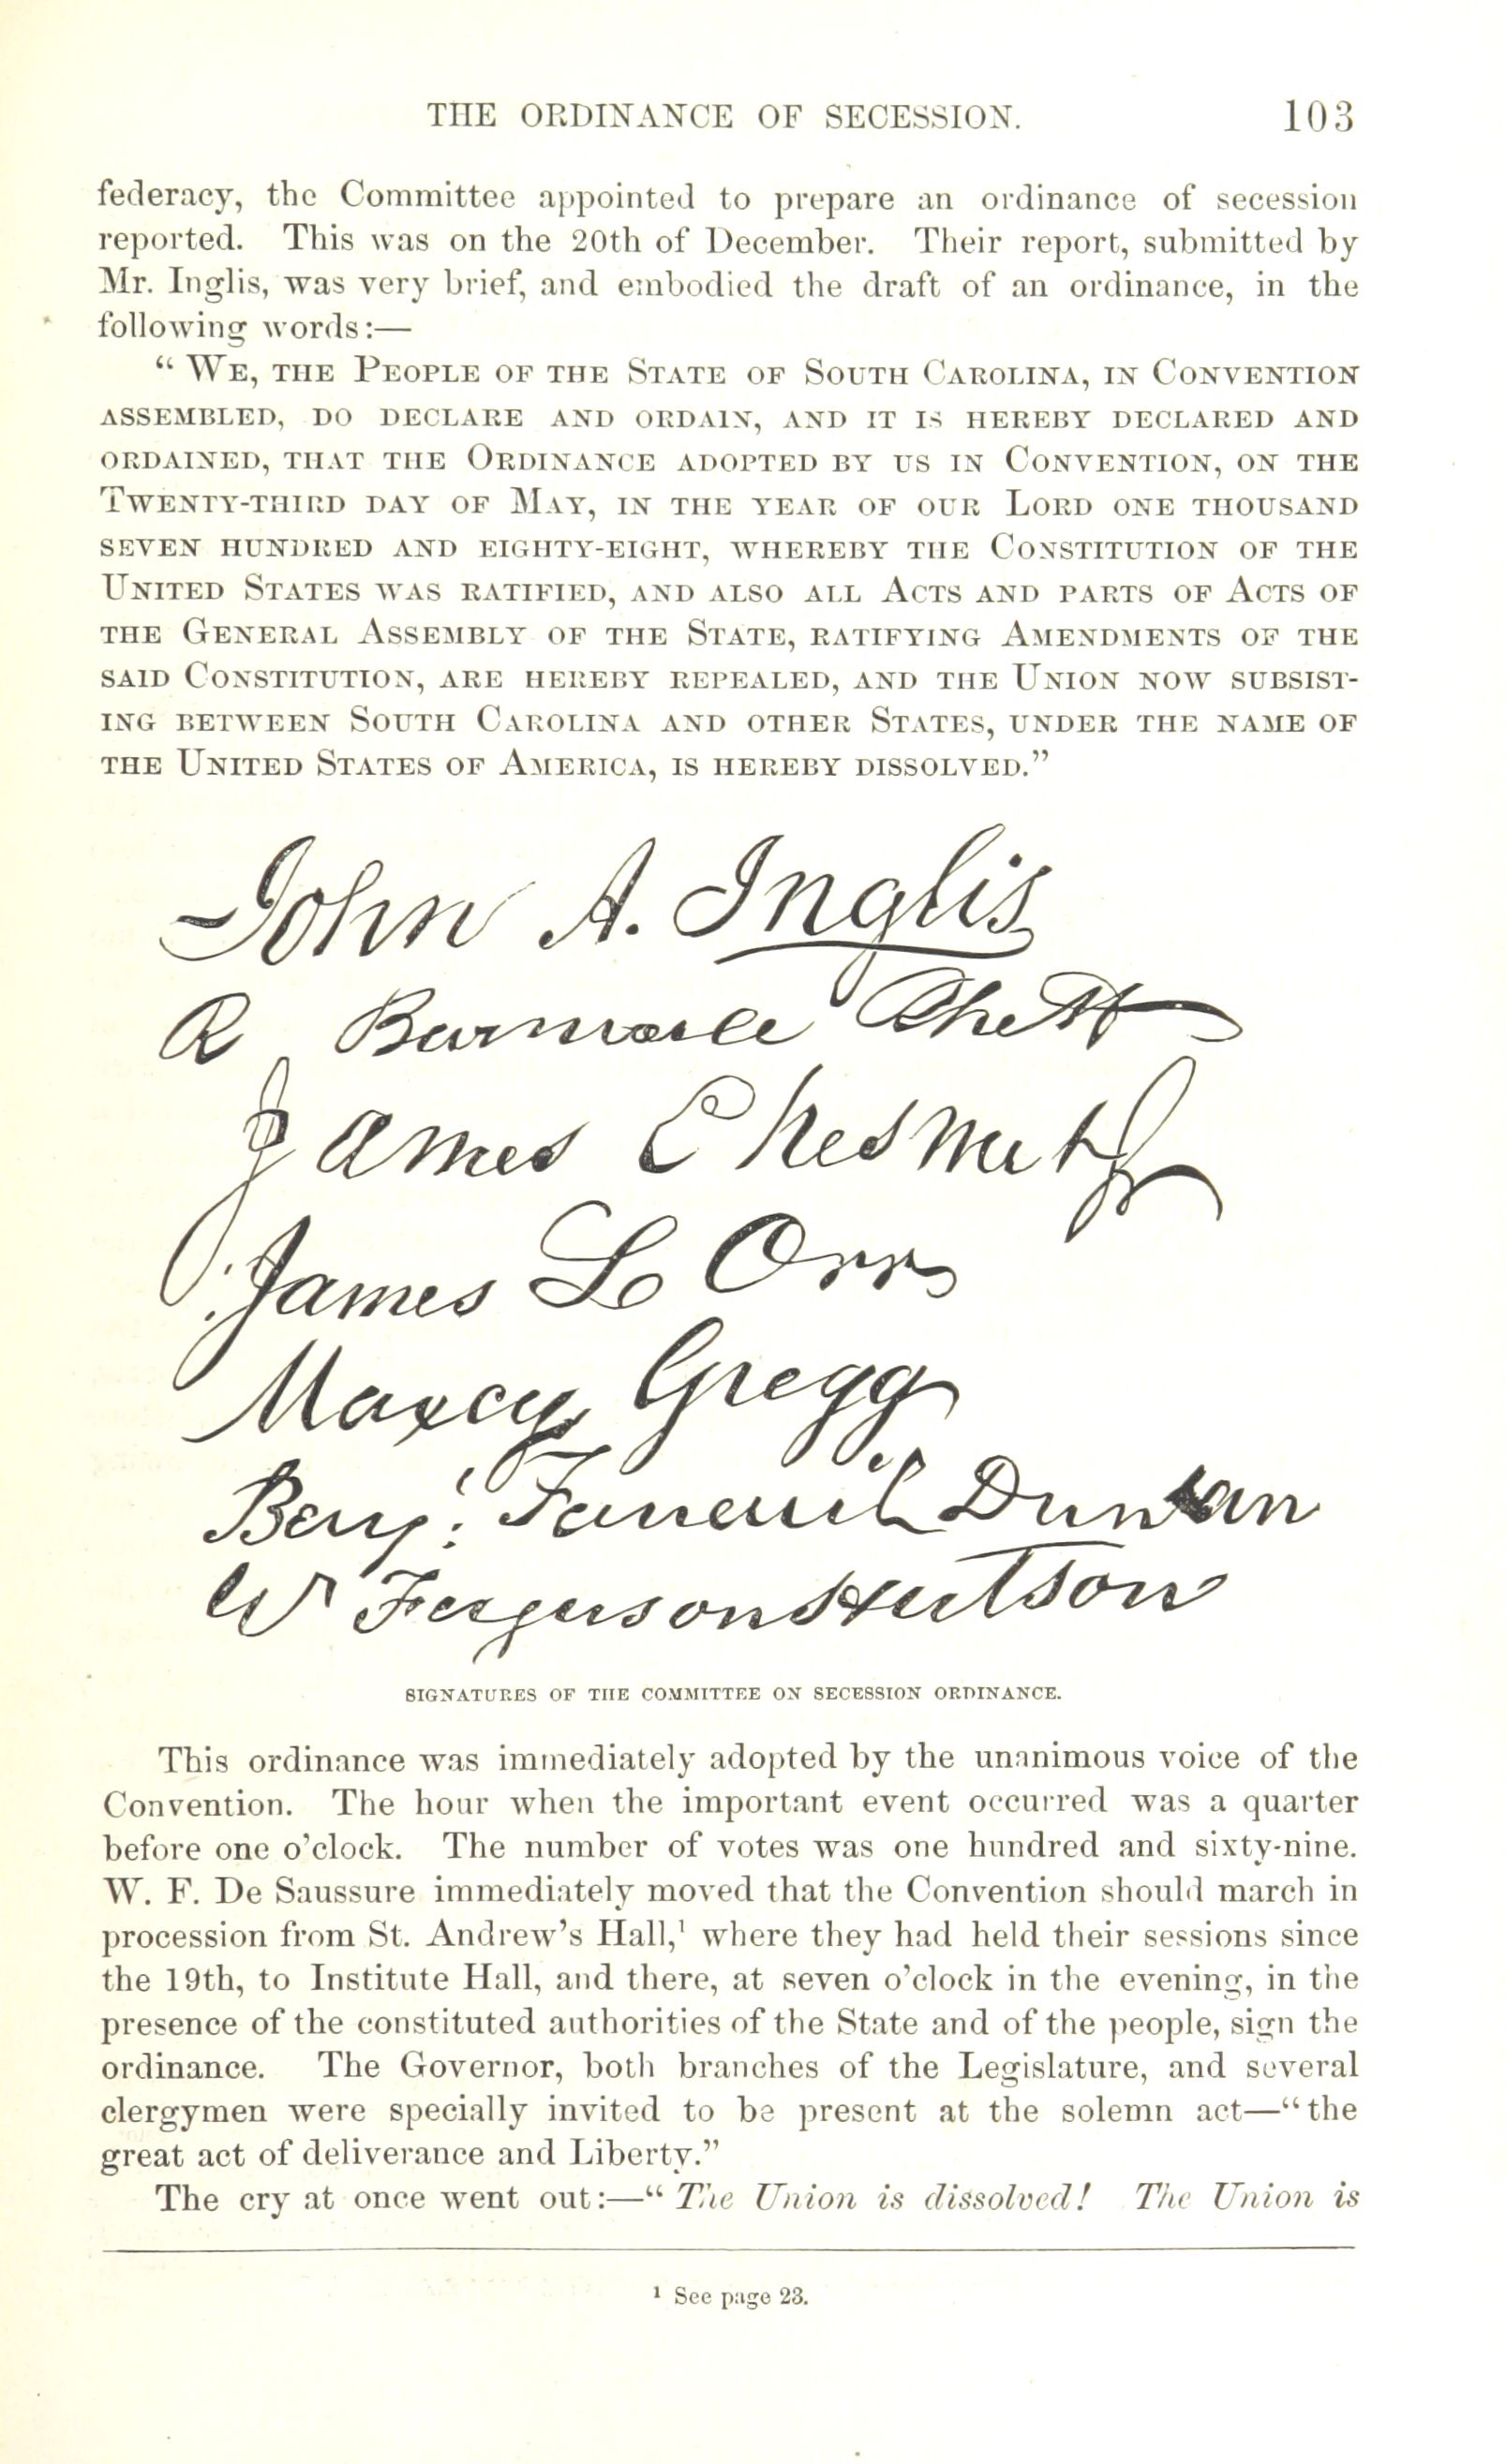 THE ORDINANCE OF SECESSION. 103
federacy, the Committee appointed to prepare an ordinance of secession
reported. This was on the 20th of December. Their report, submitted by
Mr. Inglis, was very brief, and embodied the draft of an ordinance, in the
following words:—
“WE, THE PEOPLE OF THE STATE OF SOUTH CAROLINA, IN CONVENTION
ASSEMBLED, DO DECLARE AND ORDAIN, AND IT IS HEREBY DECLARED AND
ORDAINED, THAT THE ORDINANCE ADOPTED BY US IN CONVENTION, ON THE
TWENTY-THIRD DAY OF MAY, IN THE YEAR OF OUR LORD ONE THOUSAND
SEVEN HUNDRED AND EIGHTY-EIGHT, WHEREBY THE CONSTITUTION OF THE
UNITED STATES WAS RATIFIED, AND ALSO ALL ACTS AND PARTS OF ACTS OF
THE GENERAL ASSEMBLY OF THE STATE, RATIFYING AMENDMENTS OF THE
SAID CONSTITUTION, ARE HEREBY REPEALED, AND THE UNION NOW SUBSIST-
ING BETWEEN SOUTH CAROLINA AND OTHER STATES, UNDER THE NAME OF
THE UNITED STATES OF AMERICA, IS HEREBY DISSOLVED.”
John A. Inglis
R Barnwell Rhett
James Chesnut Jr
James L Orr
Maxcy Gregg
Benj. Faneuil Duncan
W Ferguson Hutson
SIGNATURES OF THE COMMITTEE ON SECESSION ORDINANCE.
This ordinance was immediately adopted by the unanimous voice of the
Convention. The hour when the important event occurred was a quarter
before one o’clock. The number of votes was one hundred and sixty-nine.
W. F. De Saussure immediately moved that the Convention should march in
procession from St. Andrew’s Hall,¹ where they had held their sessions since
the 19th, to Institute Hall, and there, at seven o’clock in the evening, in the
presence of the constituted authorities of the State and of the people, sign the
ordinance. The Governor, both branches of the Legislature, and several
clergymen were specially invited to be present at the solemn act—“the
great act of deliverance and Liberty.”
The cry at once went out:—“The Union is dissolved! The Union is
¹ See page 23.